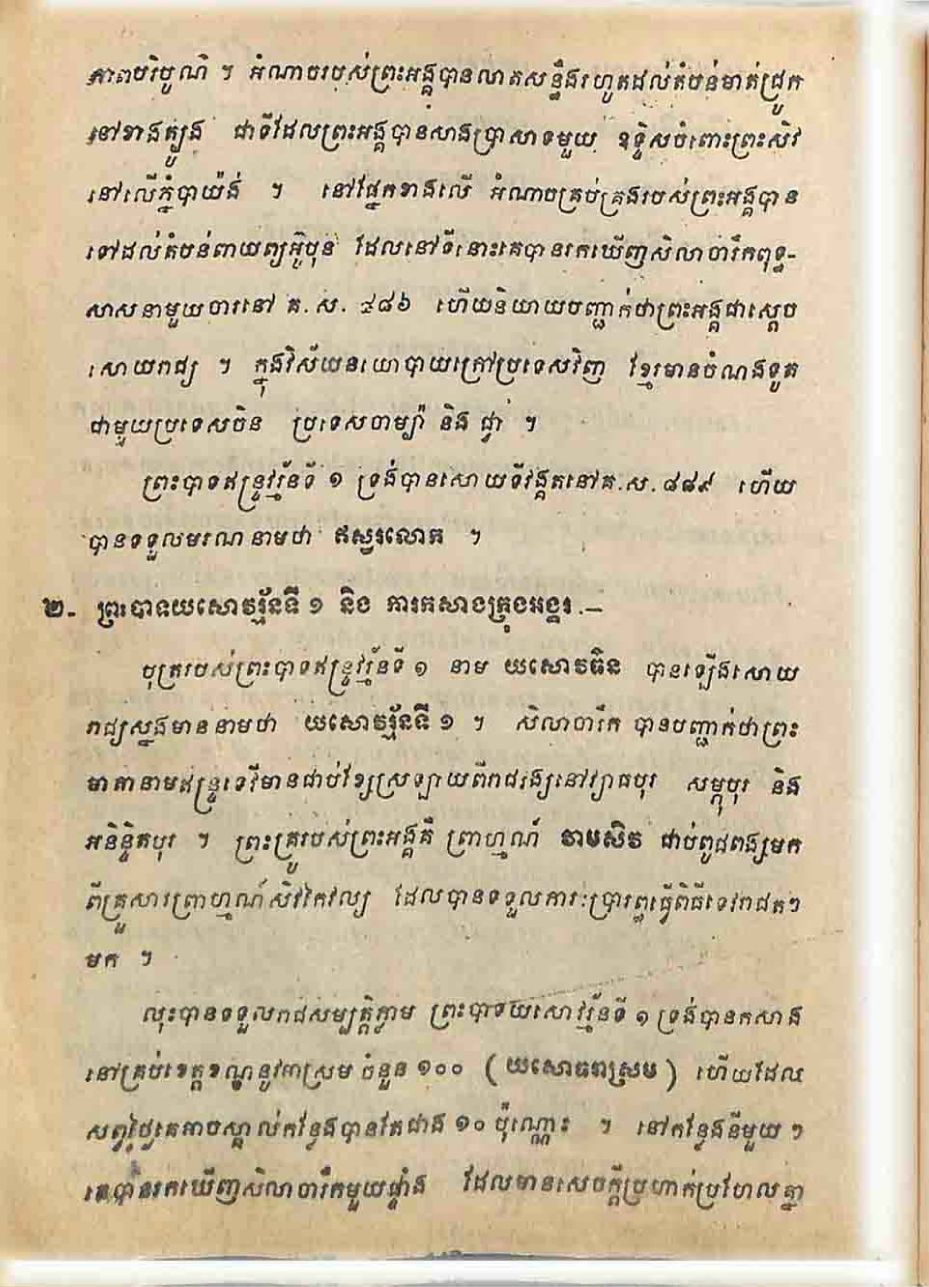 ភាពបរិបូណ៌ ។ អំណាចរបស់ព្រះអង្គបានលាតសន្ធឹងរហូតដល់តំបន់មាត់ជ្រូក
នៅខាងត្បូង ជាទីដែលព្រះអង្គបានសាងប្រាសាទមួយ ឧទ្ទិសចំពោះព្រះសិវ
នៅលើភ្នំបាយ៉ង់ ។ នៅផ្នែកខាងលើ អំណាចគ្រប់គ្រងរបស់ព្រះអង្គបាន
ទៅដល់តំបន់ពាយព្យអ៊ូបុន ដែលនៅទីនោះគេបានរកឃើញសិលាចារឹកពុទ្ធ-
សាសនាមួយចារនៅ គ.ស. ៨៨៦ ហើយនិយាយបញ្ជាក់ថាព្រះអង្គជាស្តេច
សោយរាជ្យ ។ ក្នុងវិស័យនយោបាយក្រៅប្រទេសវិញ ខ្មែរមានចំណងទូត
ជាមួយប្រទេសចិន ប្រទេសចាម្ប៉ា និង ជ្វា ។
ព្រះបាទឥន្ទ្រវរ្ម័នទី ១ ទ្រង់បានសោយទីវង្គតនៅគ.ស.៨៨៩ ហើយ
បានទទួលមរណនាមថា ឥស្វរលោក ។
២- ព្រះបាទយសោវរ្ម័នទី ១ និង ការកសាងក្រុងអង្គរ .–
បុត្ររបស់ព្រះបាទឥន្ទ្រវរ្ម័នទី ១ នាម យសោវធិន បានឡើងសោយ
រាជ្យស្នងមាននាមថា យសោវរ្ម័នទី ១ ។ សិលាចារឹក បានបញ្ជាក់ថាព្រះ
មាតានាមឥន្ទ្រទេវីមានជាប់ខ្សែស្រឡាយពីរាជវង្សនៅវ្យាធបុរ សម្ភុបុរ និង
អនិន្ទិតបុរ ។ ព្រះគ្រូរបស់ព្រះអង្គគឺ ព្រាហ្មណ៍ វាមសិវ ជាប់ពូជពង្សមក
ពីគ្រួសារព្រាហ្មណ៍សិវកៃវល្យ ដែលបានទទួលភារៈប្រារព្ធធ្វើពិធីទេវរាជតៗ
មក ។
លុះបានទទួលរាជសម្បត្តិភ្លាម ព្រះបាទយសោវរ្ម័នទី ១ ទ្រង់បានកសាង
នៅគ្រប់ខេត្តខណ្ឌនូវអាស្រម ចំនួន ១០០ ( យសោធរាស្រម ) ហើយដែល
សព្វថ្ងៃគេអាចស្គាល់កន្លែងបានតែជាង ១០ ប៉ុណ្ណោះ ។ នៅកន្លែងនីមួយៗ
គេបានរកឃើញសិលាចារឹកមួយផ្ទាំង ដែលមានសេចក្តីប្រហាក់ប្រហែលគ្នា